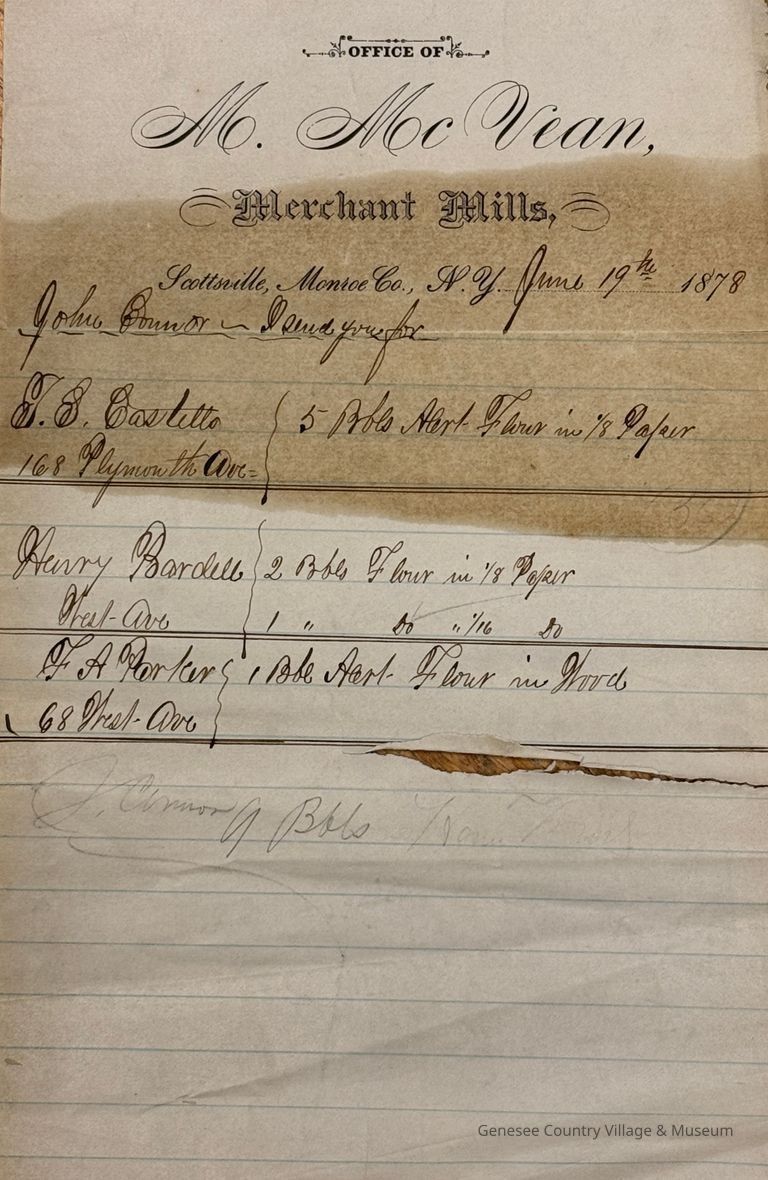 OFFICE OF
M. McVean,
Merchant Mills,
Scottsville, Monroe Co., N.Y. June 19th 1878
John Connor — I send you for
5 Bbls Flour in 1/8 Paper
168 Plymouth Ave=
Henry Bardell 2 Bbls Flour in 1/8 Paper
West Ave 1 " Do " 1/16 Do
F A Porker 1 Bbl Flour in Wood
68 West Ave
9 Bbls
Genesee Country Village & Museum